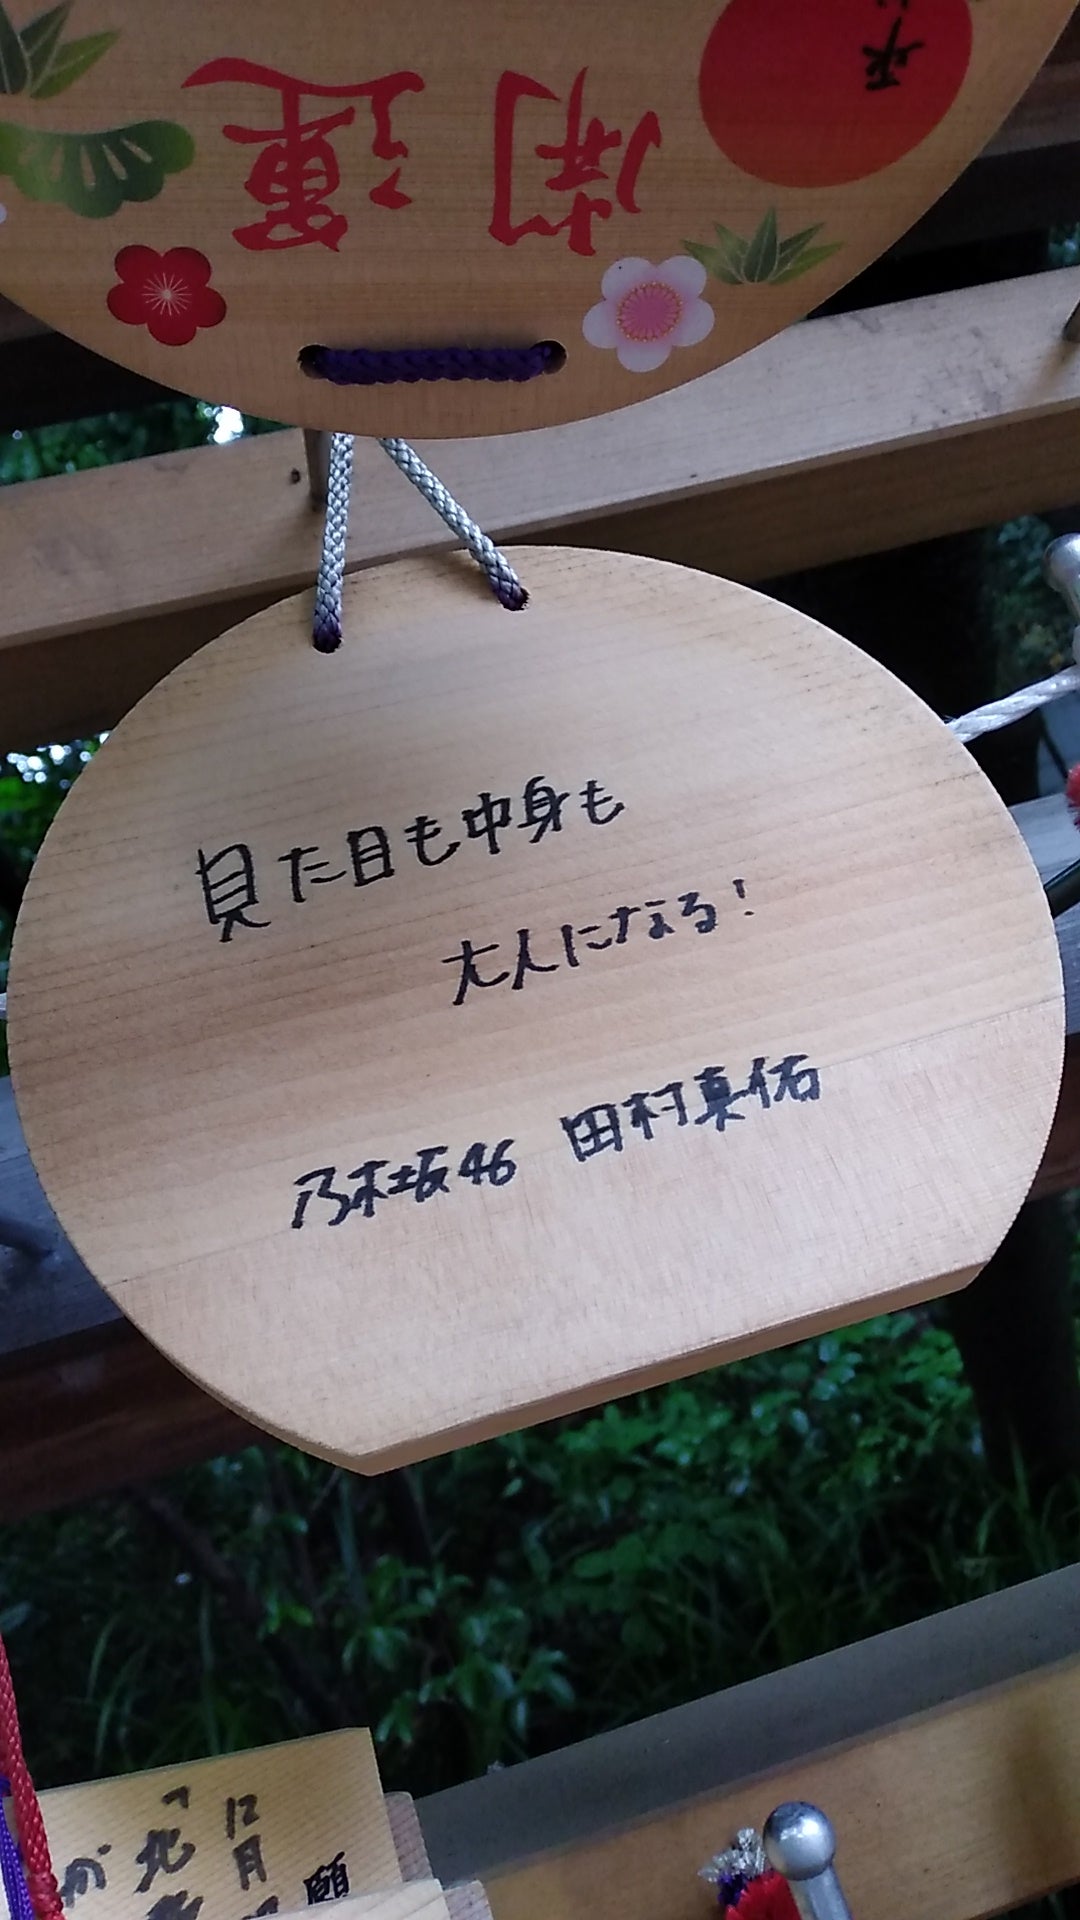 開運
見た目も中身も
大人になる!
乃木坂46 田村真佑
12月
願